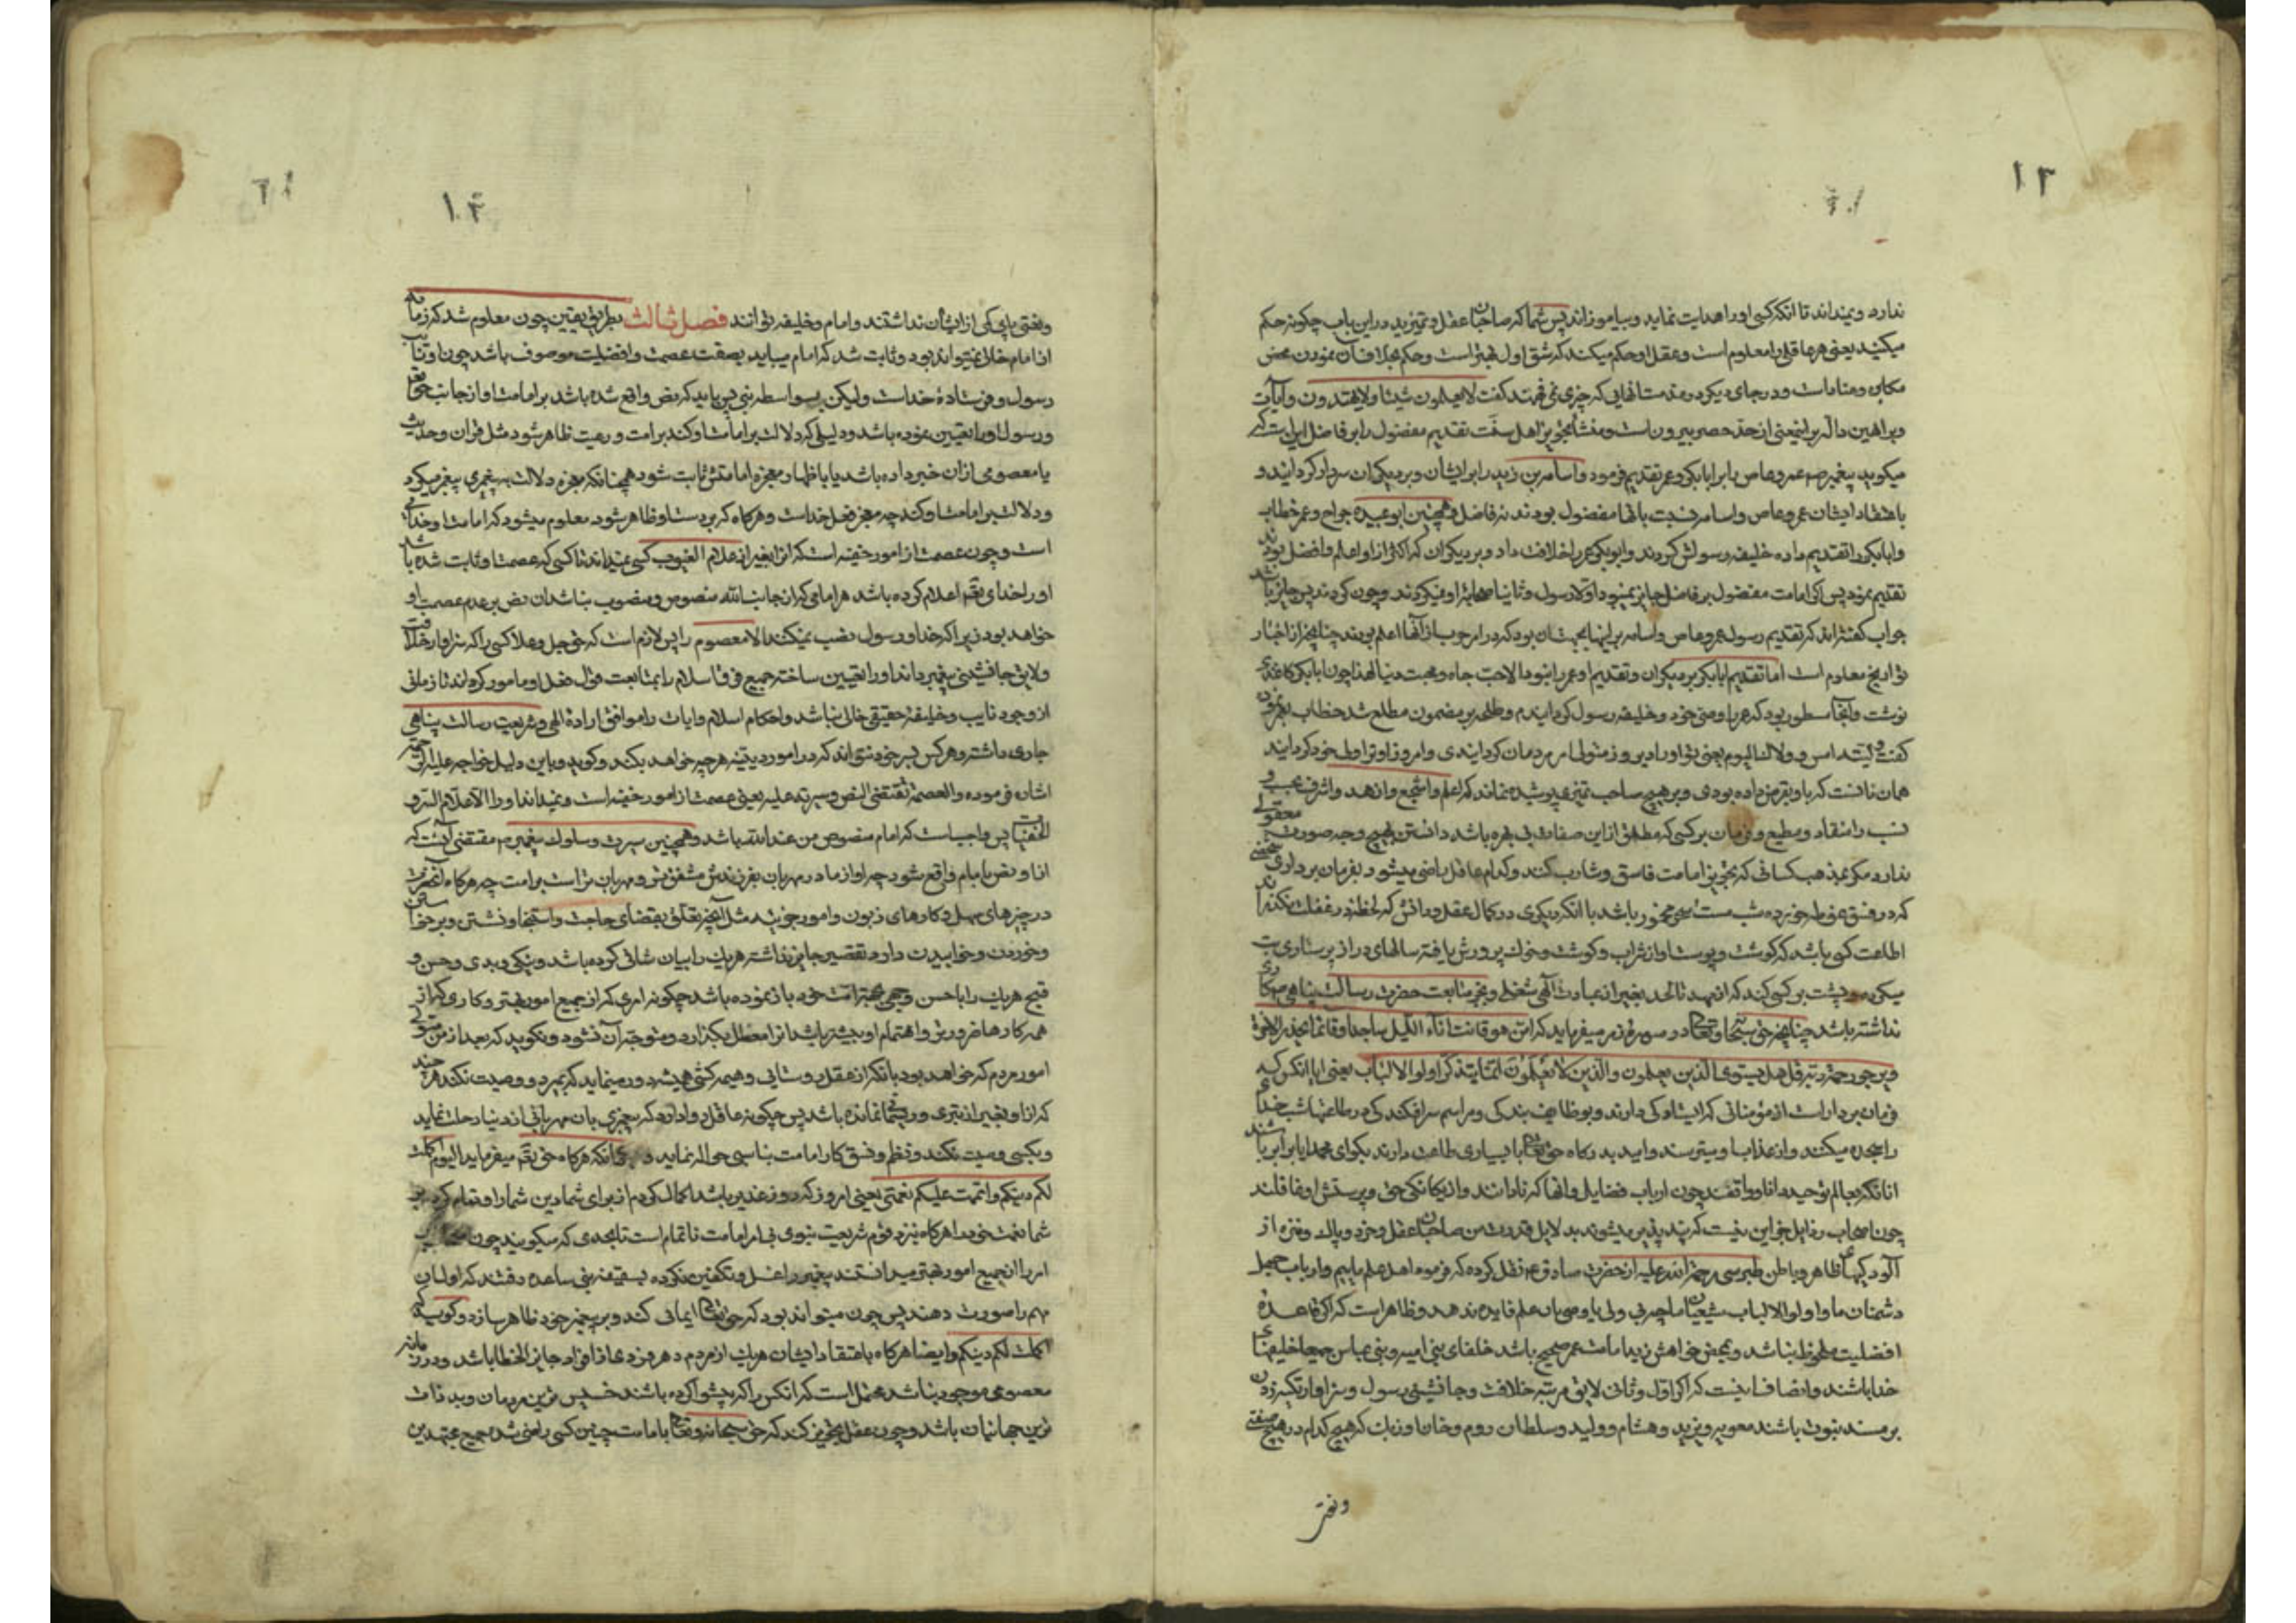 ۱۳
ندارد و نمیداند تا آنکه کسی او را هدایت نماید و بیاموزاند پس شما که صاحبان عقل و تمیزید در این باب چگونه حکم
میکنید یعنی هر عاقلی را معلوم است و عقل او حکم میکند که شق اول بهتر است و حکم بخلاف آن نمودن محض
مکابره و مناماست و در جای دیگر در مذمت آنهایی که چیزی نمی فهمند گفت لا یعلمون شیئا ولا یهتدون و آیات
و براهین داله بر اینمعنی از حد حصر بیرون است و منشأ تجویز اهل سنت تقدیم مفضول را بر فاضل این است که
میگویند پیغمبر ص عمرو عاص را بر ابابکر و عمر تقدیم فرمود و اسامه بن زید را بر ایشان و بر دیگران سردار گردانید و
باعتقاد ایشان عمرو عاص و اسامه نسبت بآنها مفضول بودند نه فاضل و همچنین ابو عبیده جراح و عمر خطاب
و ابابکر را تقدیم داده خلیفه رسولش کردند و ابوبکر عمر را خلافت داد و بر دیگران که اکثر از او اعلم و افضل بودند
تقدیم نمود پس اگر امامت مفضول بر فاضل جایز نمیبود اولا رسول و ثانیا صحابهٔ او نمیکردند و چون کردند پس جایز باشد
جواب گفته‌اند که تقدیم رسول عمرو عاص و اسامه بر اینها بجهت آن بود که در امر حرب از آنها اعلم بودند چنانچه از اخبار
تواریخ معلوم است اما تقدیم ابابکر بر دیگران و تقدیم او عمر را نبود الا حب جاه و محبت دنیا لهذا چون ابابکر کاغذی
نوشت و آنجا مسطور بود که عمر را وصی خود و خلیفه رسول گردانیدم و علی بر مضمون مطلع شد خطاب بعمر
گفت ولیته امس و ولاک الیوم یعنی تو او را دیروز متولی امر مردمان گردانیدی و امروز او ترا والی خود گردانید
همان نا نست که باو قرض داده بودی و بر هیچ صاحب تمیزی پوشیده نماند که اعلم و اشجع و ازهد و اشرف بحسب و
نسب را منقاد و مطیع و فرمان بر کسی که مطلق از این صفات بی بهره باشد دانستن بهیچ وجه صورت معقولی
ندارد مگر بمذهب کسانی که تجویز امامت فاسق و شارب کنند و کدام عاقل راضی میشود بفرمان برداری شخصی
که در فسق غوطه خورده شب مست و صبح مخمور باشد با آنکه دیگری در کمال عقل و دانش که لحظهٔ در غفلت نگذراند
اطاعت کسی باشد که گوشت و پوست او از شراب و گوشت خوک پرورش یافته سالهای دراز پرستاری بت
میکرده و پشت بر کسی کند که از مهد تا لحد بغیر از عبادت الهی شغلی و بجز متابعت حضرت رسالت پناهی ص کاری
نداشته باشد چنانچه حق سبحانه و تعالی در سوره زمر میفرماید که امن هو قانت آناء اللیل ساجدا و قائما یحذر الاخرة
و یرجو رحمة ربه قل هل یستوی الذین یعلمون والذین لا یعلمون انما یتذکر اولوا الالباب یعنی ایا انکس که
فرمان بردار است از مؤمنانی که ایستادگی دارند و بوظایف بندگی و مراسم سرافکندگی در طاعتها شب خدای
را سجده میکنند و از عذاب او میترسند و امید بدرگاه حق تعالی با بسیاری طاعت دارند بگو ای محمد ایا برابر باشند
آنانکه بعالم توحید دانا و واقفند چون ارباب فضایل و آنها که نادانند و از یگانگی حق و پرستش او غافلند
چون اصحاب رذایل جز این نیست که پند پذیر میشوند بدلایل قدرت من صاحبان عقل و خرد و پاک و منزه از
آلودگیهای ظاهر و باطن طبرسی رحمة الله علیه از حضرت صادق ع نقل کرده که فرموده اهل علم ماییم و ارباب جهل
دشمنان ما و اولوا الالباب شیعیان ما چه بی ولی یا وصی بان علم فایده ندهد و ظاهر است که اگر قاعدهٔ
افضلیت ملحوظ نباشد و بمحض خواهش زید امامت عمر صحیح باشد خلفای بنی امیه و بنی عباس جمیعا خلیفهای
خدا باشند و انصاف اینست که اگر اول و ثانی لایق مرتبه خلافت و جانشینی رسول و سزاوار تکیه زدن
بر مسند نبوت باشند معویه و یزید و هشام و ولید و سلطان روم و خان اوزبک که هیچکدام در هیچ صفتی
ونقص
۱۴
ونقصی پای کمی از ایشان نداشتند و امام و خلیفه توانند فصل ثالث بطریق یقین چون معلوم شد که زمانه
از امام خالی نمیتواند بود و ثابت شد که امام میباید بصفت عصمت و افضلیت موصوف باشد چون او نایب
رسول و فرستادهٔ خداست ولیکن بواسطه نبی پس باید که نص واقع شده باشد بر امامت او از جانب حق تعالی
و رسول او را تعیین نموده باشد و دلیلی که دلالت بر امامت او کند بر امت و رعیت ظاهر شود مثل قرآن و حدیث
یا معصومی از ان خبر داده باشد یا باظهار معجزه امامتش ثابت شود همچنانکه معجزه دلالت به پیغمبری پیغمبر میکرد
و دلالت بر امامت او کند چه معجز فعل خداست و هرگاه که بر دست او ظاهر شود معلوم میشود که امامت او خدائی
است و چون عصمت از امور خفیه است که انرا بغیر از علام الغیوب کسی نمیداند تا کسی که عصمت او ثابت شده باشد
او را خدای تع اعلام کرده باشد هر امامی که از جانب الله منصوص و منصوب نباشد ان نص بر عدم عصمت او
خواهد بود زیرا که خدا و رسول نصب نمیکنند الا معصوم را پس لازم است که حق جل و علا کسی را که سزاوار خلافت
و لایق جانشینی پیغمبر داند او را تعیین ساخته جمیع فرق اسلام را بمتابعت قول و فعل او مامور گرداند تا زمانی
از وجود نایب و خلیفهٔ حقیقی خالی نباشد و احکام اسلام و ایات را موافق ارادهٔ الهی و شریعت رسالت پناهی
جاری داشته و هر کس بسر خود نتواند که در امور دینیه هر چه خواهد بکند و گوید و باین دلیل خواجه علیه الرحمة
اشاره فرموده والعصمة تقتضی النص و سیرته علیه یعنی عصمت از امور خفیه است و نمیداند او را الا علام السر و
الخفیات پس واجب است که امام منصوص من عند الله باشد و همچنین سیرت و سلوک پیغمبر ص مقتضی آنست که
از او نص بامام واقع شود چه او از مادر مهربان بفرزندش مشفق تر و مهربان تر است بر امت چه هرگاه آنحضرت
در چیزهای سهل و کارهای زبون و امور جزئیه مثل آنچه تعلق بقضای حاجت و استنجا و نشستن و برخاستن
و خوردن و خوابیدن دارد تقصیر جایز نداشته هر یک را بیان شافی کرده باشد و نیکی و بدی و حسن و
قبح هر یک را با حسن وجهی بجهة امت خود باز نموده باشد چگونه امری که از جمیع امور بهتر و کاری که از
همه کارها ضرورتر و اهتمام او بیشتر باشد انرا معطل بگذارد و متوجه آن نشود و نگوید که بعد از من متولی
امور مردم که خواهد بود با آنکه از عقل روستایی و هیمه کش همیشه دور مینماید که بمیرد و وصیت نکند هر چند
که از او بغیر از تبری و ریسمان نمانده باشد پس چگونه عاقل روا دارد که پیغمبری بان مهربانی از دنیا رحلت نماید
و بکسی وصیت نکند و نظم و نسق کار امامت بناسی حواله نماید و انکه هرگاه حق تع میفرماید الیوم اکملت
لکم دینکم و اتممت علیکم نعمتی یعنی امروز که روز غدیر باشد اکمال کردم از برای شما دین شما را و تمام کردم بر
شما نعمت خود را هرگاه نزد قوم شریعت نبوی بی امر امامت ناتمام است تا بحدی که میگویند چون
امر را از جمیع امور بهتر میدانستند پیغمبر را غسل و تکفین نکرده بسقیفه بنی ساعده رفتند که اول ان
مهم را صورت دهند پس چون میتواند بود که حق تعالی ایمانی کند و بر پیغمبر خود ظاهر سازد و گوید که
اکملت لکم دینکم و ایضا هرگاه باعتقاد ایشان هر یک از مردم و هر فردی از افراد جایز الخطا باشد و در زمانه
معصومی موجود نباشد محتمل است که انکس را که پیشوا کرده باشند خسیس ترین مردمان و بد ذات
ترین جهانیان باشد و چون عقل تجویز کند که حق سبحانه و تعالی بامامت چنین کسی راضی شده جمیع مجتهدین